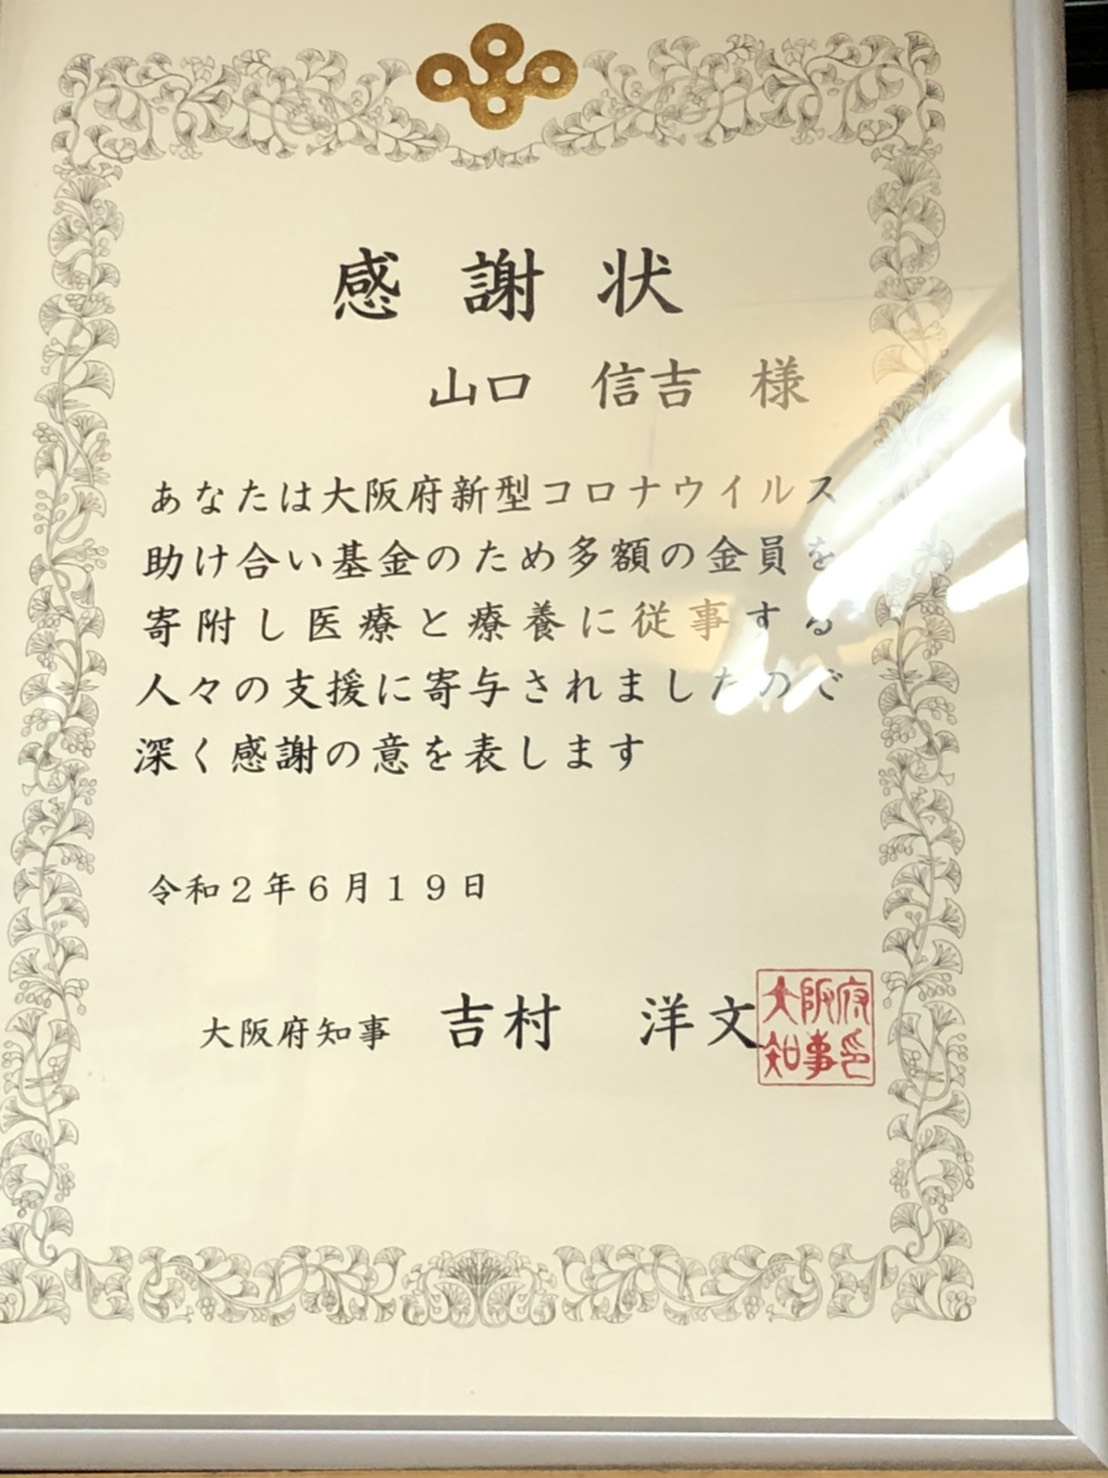 感謝状
山口 信吉 様
あなたは大阪府新型コロナウイルス
助け合い基金のため多額の金員を
寄附し医療と療養に従事する
人々の支援に寄与されましたので
深く感謝の意を表します
令和２年６月１９日
大阪府知事 吉村 洋文
大阪府
知事印